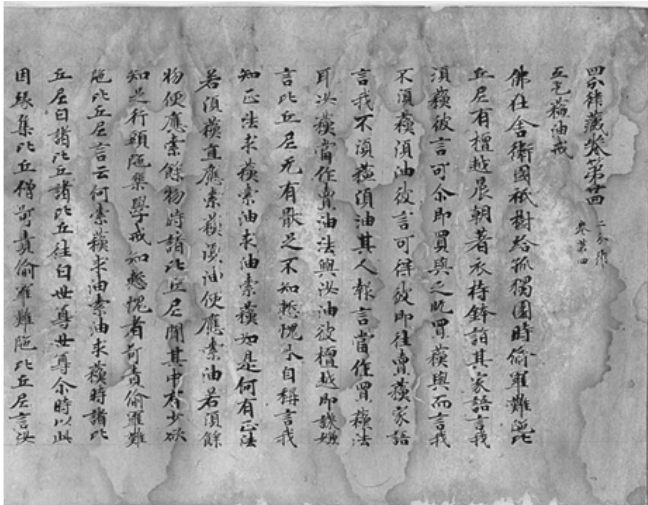 四分律藏卷第廿四 二分作卷第四
五乞蘓油戒
佛在舍衛國祇樹給孤獨園時偷羅難陁比
丘尼有檀越晨朝著衣持鉢詣其家語言我
須蘓彼言可尒即買與之既買蘓與而言我
不須蘓須油彼言可得彼即往賣蘓家語
言我不須蘓須油其人報言當作買蘓法
耳汝蘓當作賣油法與汝油彼檀越即譏嫌
言此比丘尼无有猒足不知慙愧外自稱言我
知正法求蘓索油求油索蘓如是何有正法
若須蘓直應索蘓須油便應索油若須餘
物便應索餘物時諸比丘尼聞其中有少欲
知足行頭陁樂學戒知慙愧者訶責偷羅難
陁比丘尼言云何索蘓求油索油求蘓時諸比
丘尼白諸比丘諸比丘往白世尊世尊尒時以此
因緣集比丘僧訶責偷羅難陁比丘尼言汝